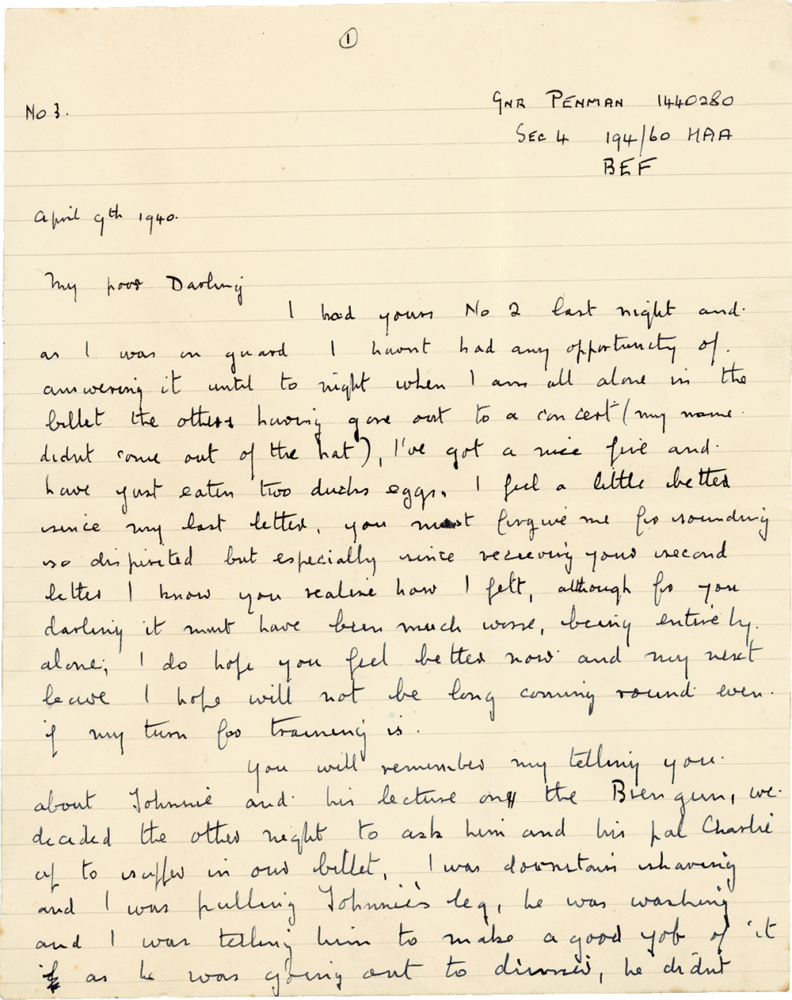 1
No 3.
GNR PENMAN 1440280
SEC 4 194/60 HAA
BEF
April 9th 1940.
My poor Darling
I had yours No 2 last night and
as I was on guard I havnt had any opportunity of
answering it until to night when I am all alone in the
billet the others having gone out to a concert (my name
didnt come out of the hat), I've got a nice fire and
have just eaten two ducks eggs. I feel a little better
since my last letter, you must forgive me for sounding
so dispirited but especially since receiving your second
letter I know you realise how I felt, although for you
darling it must have been much worse, being entirely
alone, I do hope you feel better now and my next
leave I hope will not be long coming round even
if my turn for training is.
You will remember my telling you
about Johnnie and his lecture on the Bren gun, we
decided the other night to ask him and his pal Charlie
up to supper in our billet, I was downstairs shaving
and I was pulling Johnnie's leg, he was washing
and I was telling him to make a good job of it
as he was going out to dinner, he didnt